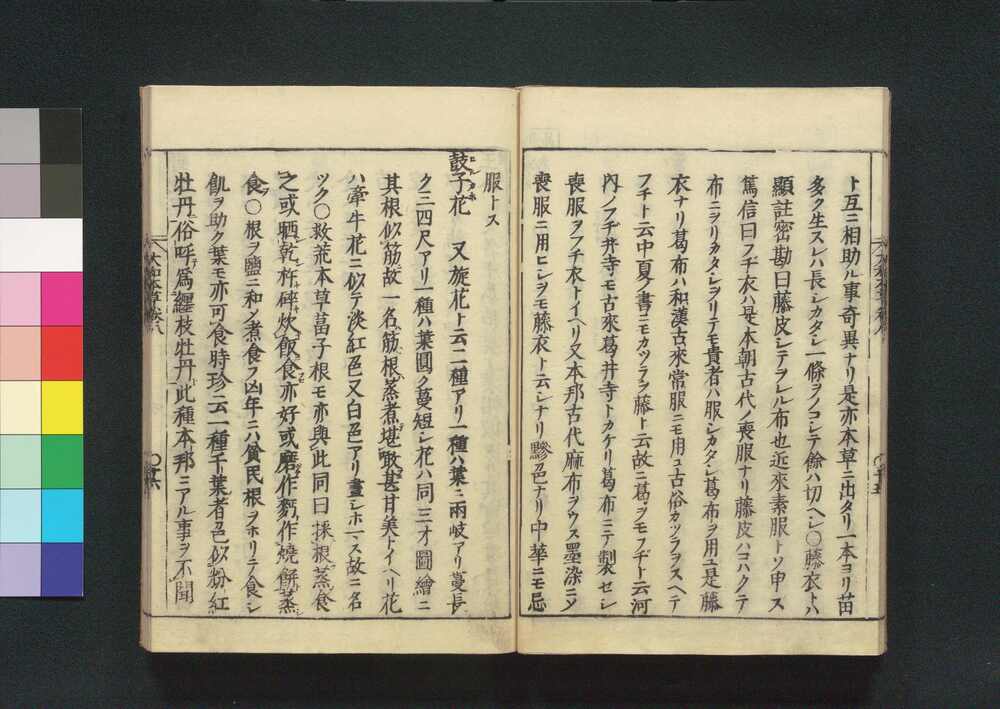 ト互ニ相助ル事奇異ナリ是亦本草ニ出タリ一本ヨリ苗
多ク生スレハ長シカタシ一條ヲノコシテ餘ハ切ヘシ○藤衣トハ
顯註密勘曰藤皮シテヲル布也近來素服トソ申ス
篤信曰フヂ衣ハ是本朝古代ノ喪服ナリ藤皮ハコハクテ
布ニヲリカタシヲリテモ貴者ハ服シカタシ葛布ヲ用ユ是藤
衣ナリ葛布ハ和漢古來常服ニモ用ユ古俗カツラヲスヘテ
フチト云中夏ノ書ニモカツラヲ藤ト云故ニ葛ヲモフヂト云河
内ノフヂ井寺モ古來葛井寺トカケリ葛布ニテ製セシ
喪服ヲフチ衣トイヘリ又本邦古代麻布ヲウス墨染ニメ
喪服ニ用ヒシヲモ藤衣ト云シナリ黲色ナリ中華ニモ忌
服トス
鼓子花 又旋花ト云二種アリ一種ハ葉ニ兩岐アリ蔓長
ク三四尺アリ一種ハ葉圓ク蔓短シ花ハ同三才圖繪ニ
其根似筋故一名筋根蒸煮堪啖甚甘美トイヘリ花
ハ牽牛花ニ似テ淡紅色又白色アリ晝シホヽス故ニ名
ツク○救荒本草葍子根モ亦與此同曰採根蒸食
之或晒乾杵碎炊飯食亦好或磨作麪作燒餅蒸
食○根ヲ鹽ニ和メ煮食フ凶年ニハ貧民根ヲホリテ食シ
飢ヲ助ク葉モ亦可食時珍云一種千葉者色似粉紅
牡丹俗呼爲纏枝牡丹此種本邦ニアル事ヲ不聞
大和本草卷八
○十六